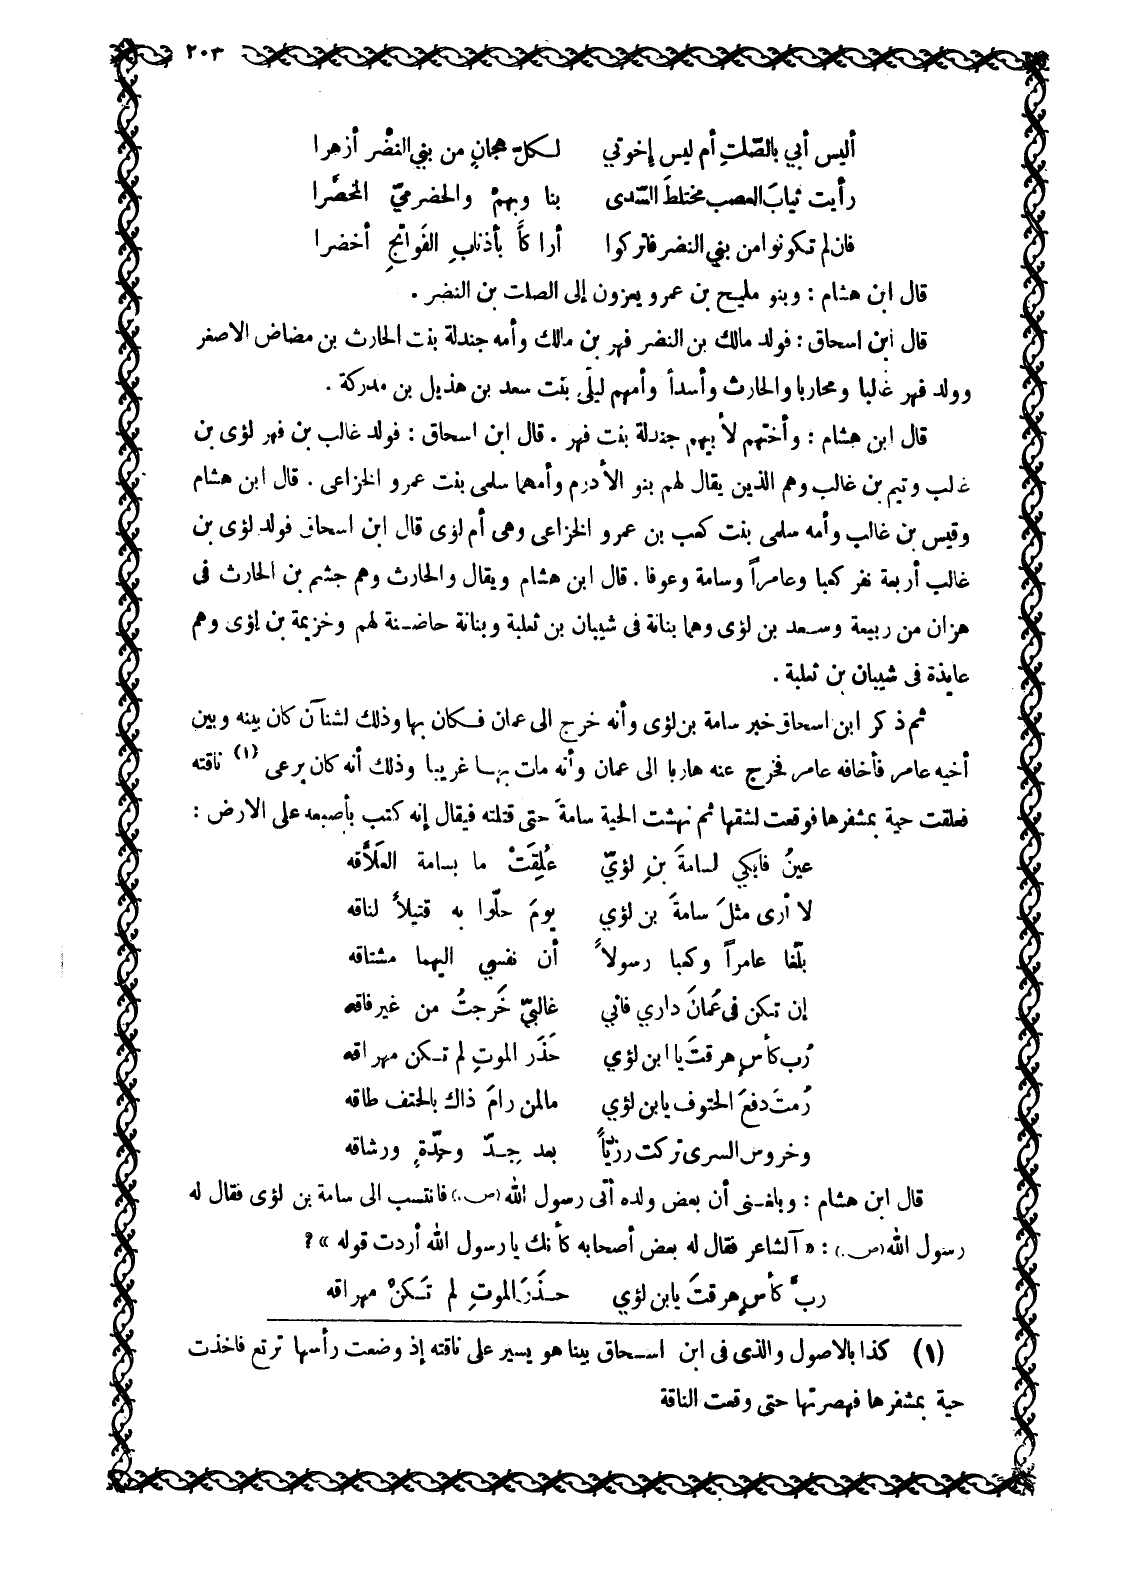 ٢٠٣
أليس أبي بالصّلتِ أم ليس إخوتي لكلّ هجانٍ من بني النضْر أزهرا
رأيت ثيابَ العصب مختلطَ السَّدى بنا وبهمْ والحضرميّ المخصَّرا
فان لم تكونوا من بني النضر فاتركوا أراكاً بأذنابِ الفَوائجِ أخضرا
قال ابن هشام : وبنو مليح بن عمرو يعزون إلى الصلت بن النضر .
قال ابن اسحاق : فولد مالك بن النضر فهر بن مالك وأمه جندلة بنت الحارث بن مضاض الاصغر
وولد فهر غالبا ومحاربا والحارث وأسدأ وأمهم ليلى بنت سعد بن هذيل بن مدركة .
قال ابن هشام : وأختهم لأبيهم جندلة بنت فهر . قال ابن اسحاق : فولد غالب بن فهر لؤى بن
غالب وتيم بن غالب وهم الذين يقال لهم بنو الأدرم وأمهما سلمى بنت عمرو الخزاعى . قال ابن هشام
وقيس بن غالب وأمه سلمى بنت كعب بن عمرو الخزاعى وهى أم لؤى قال ابن اسحاق فولد لؤى بن
غالب أربعة نفر كعبا وعامراً وسامة وعوفا . قال ابن هشام ويقال والحارث وهم جشم بن الحارث فى
هزان من ربيعة وسعد بن لؤى وهما بنانة فى شيبان بن ثعلبة وبنانة حاضنة لهم وخزيمة بن لؤى وهم
عايذة فى شيبان بن ثعلبة .
ثم ذكر ابن اسحاق خبر سامة بن لؤى وأنه خرج الى عمان فكان بها وذلك لشنآن كان بينه وبين
أخيه عامر فأخافه عامر فخرج عنه هاربا الى عمان وأنه مات بها غريبا وذلك أنه كان يرعى (١) ناقته
فعلقت حية بمشفرها فوقعت لشقها ثم نهشت الحية سامةَ حتى قتلته فيقال إنه كتب بأصبعه على الارض :
عينُ فابكي لسامةَ بنِ لؤيّ عَلِقَتْ ما بسامة العَلاَّقه
لا أرى مثلَ سامةَ بن لؤي يومَ حلّوا به قتيلاً لناقه
بلّغا عامراً وكعبا رسولاً أن نفسي اليهما مشتاقه
إن تكن فى عُمانَ داري فاني غالبيّ خَرجتُ من غير فاقه
رُب كأسٍ هرقتَ يا ابن لؤي حَذَر الموتِ لم تكن مهراقه
رُمتَ دفعَ الحتوف يابن لؤي مالمن رامَ ذاك بالحتف طاقه
وخروس السرى تركت رزيّاً بعد جِدّ وحِدّةٍ ورشاقه
قال ابن هشام : وبلغنى أن بعض ولده أتى رسول الله (ص.) فانتسب الى سامة بن لؤى فقال له
رسول الله (ص.) : « آلشاعر فقال له بعض أصحابه كأنك يارسول الله أردت قوله » ؟
ربَّ كأسٍ هرقتَ يابن لؤي حَذَرَ الموتِ لم تَكنْ مهراقه
(١) كذا بالاصول والذى فى ابن اسحاق بينا هو يسير على ناقته إذ وضعت رأسها ترتع فاخذت
حية بمشفرها فهصرتها حتى وقعت الناقة